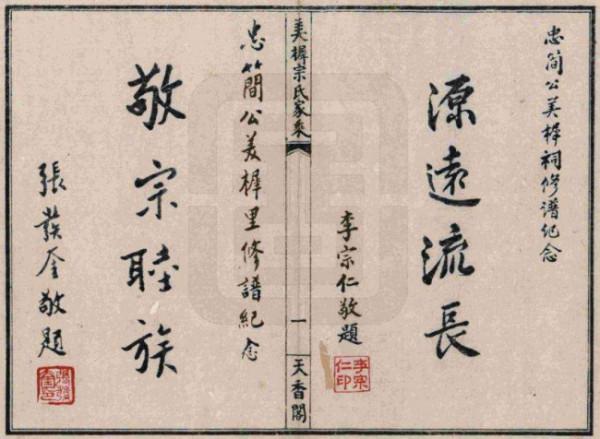 忠简公美樨祠修谱纪念
源遠流長
李宗仁敬題
李宗
仁印
美樨宗氏家乘
一
天香閣
忠簡公美樨里修譜紀念
敬宗睦族
張發奎敬題